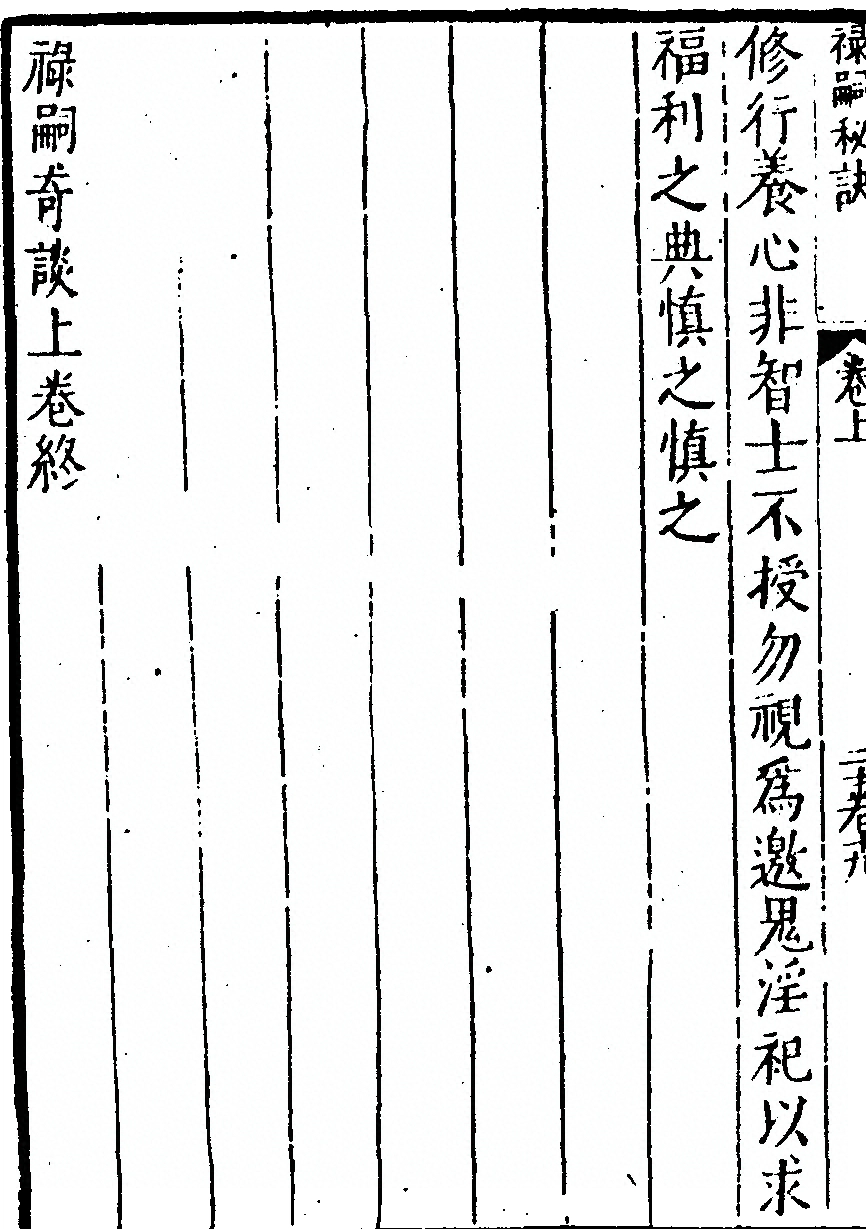 祿嗣秘訣
卷上
修行養心非智士不授勿視爲邀鬼淫祀以求
福利之典慎之慎之
祿嗣奇談上卷終